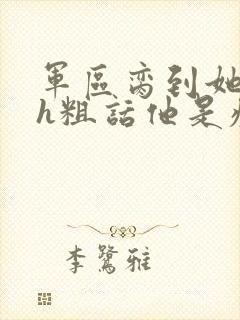 軍區脔到她
h粗話他是
李鷺雅